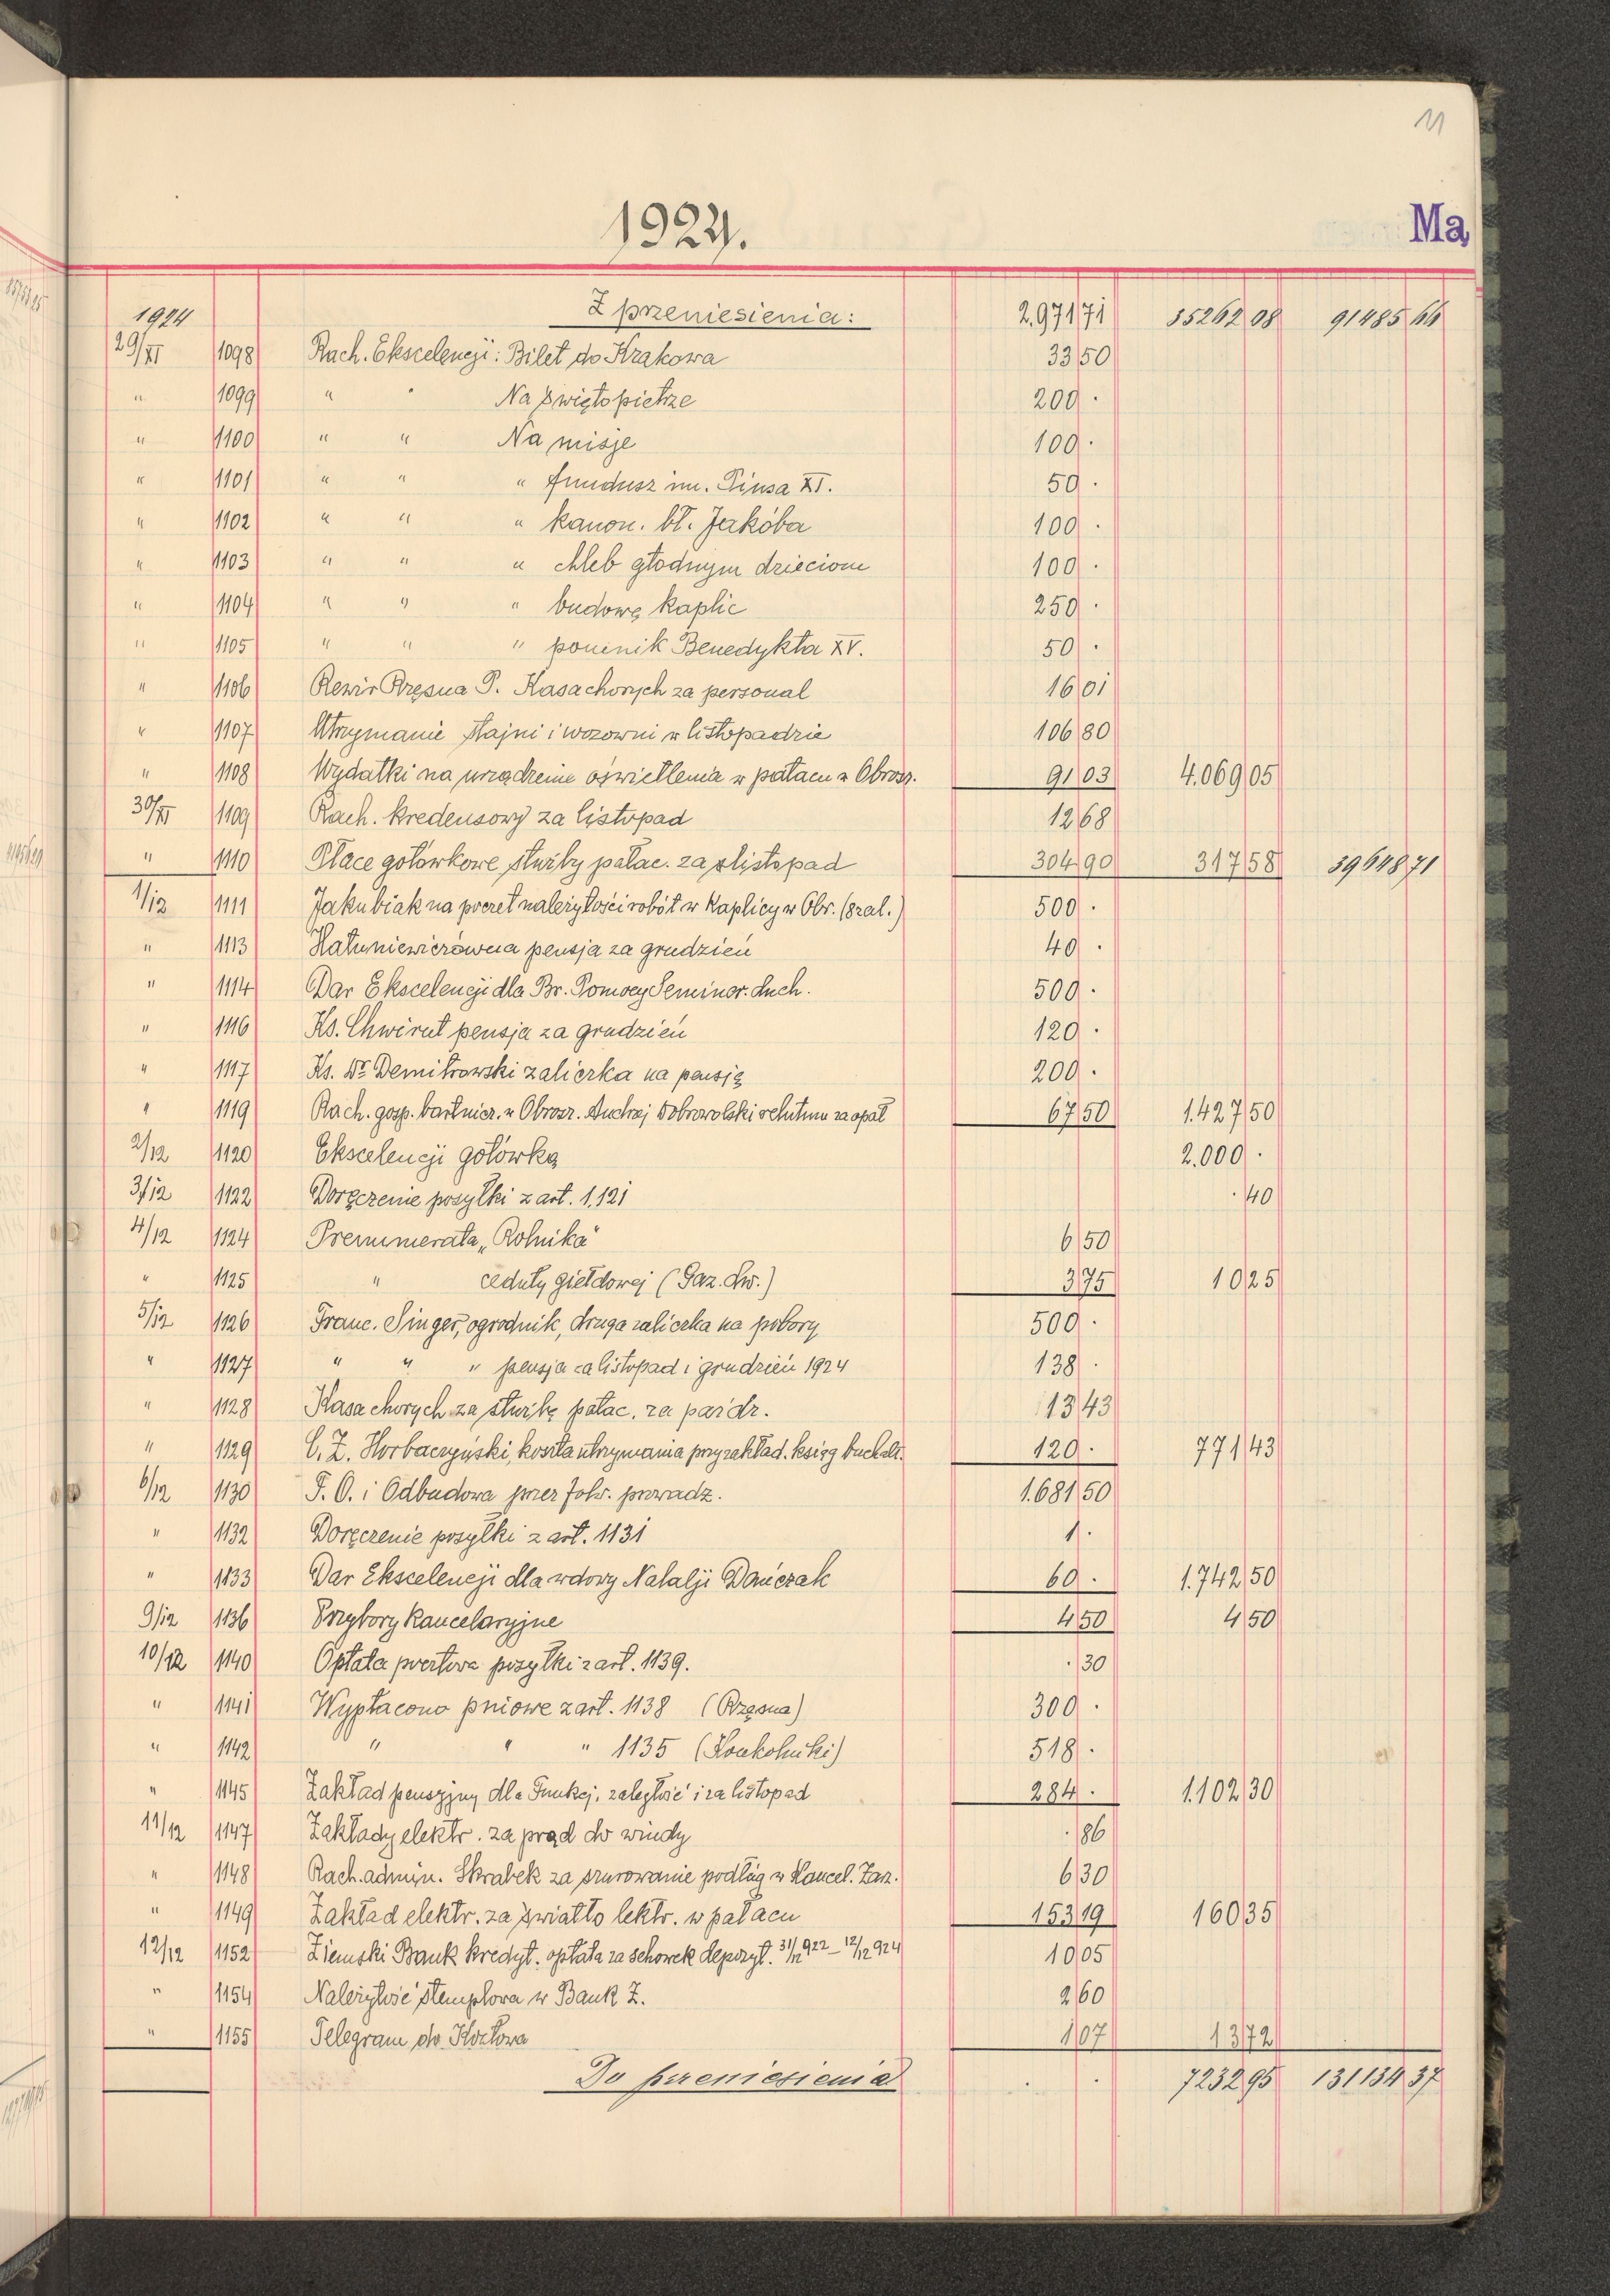 11
1924.
Ma
1924 Z przeniesienia: 2.971 71 35262 08 91485 66
29/XI 1098 Rach. Ekscelencji: Bilet do Krakowa 33 50
" 1099 " " Na Świętopietrze 200 .
" 1100 " " Na misje 100 .
" 1101 " " " fundusz im. Piusa XI. 50 .
" 1102 " " " kanon. bł. Jakóba 100 .
" 1103 " " " chleb głodnym dzieciom 100 .
" 1104 " " " budowę kaplic 250 .
" 1105 " " " pomnik Benedykta XV. 50 .
" 1106 Rewir Rzęsna P. Kasa chorych za personal 16 01
" 1107 Utrzymanie stajni i wozowni w listopadzie 106 80
" 1108 Wydatki na urządzenie oświetlenia w pałacu w Obrosz. 91 03 4.069 05
30/XI 1109 Rach. kredensowy za listopad 12 68
" 1110 Płace gotówkowe służby pałac. za listopad 304 90 317 58 39648 71
1/12 1111 Jakubiak na poczet należytości robót w Kaplicy w Obr. (8 zal.) 500 .
" 1113 pensja za grudzień 40 .
" 1114 Dar Ekscelencji dla Br. Pomocy Seminar. duch. 500 .
" 1116 Ks. Chwirut pensja za grudzień 120 .
" 1117 Ks. Dr Demitrowski zaliczka na pensję 200 .
" 1119 Rach. gosp. bartnicz. w Obrosz. Andrzej Dobrowolski relutum za opał 67 50 1.427 50
2/12 1120 Ekscelencji gotówką 2.000 .
3/12 1122 Doręczenie posyłki z art. 1.121 . 40
4/12 1124 Prenumerata „Rolnika" 6 50
" 1125 " ceduły giełdowej (Gaz. Lw.) 3 75 10 25
5/12 1126 Franc. Singer, ogrodnik, druga zaliczka na pobory 500 .
" 1127 " " " pensja za listopad i grudzień 1924 138 .
" 1128 Kasa chorych za służbę pałac. za paźdz. 13 43
" 1129 C. Z. Horbaczyński, koszta utrzymania przy zakład. ksiąg buchalt. 120 . 771 43
6/12 1130 F. O. i Odbudowa przez Folw. prowadz. 1.681 50
" 1132 Doręczenie posyłki z art. 1131 1 .
" 1133 Dar Ekscelencji dla wdowy Natalji Dańczak 60 . 1.742 50
9/12 1136 Przybory kancelaryjne 4 50 4 50
10/12 1140 Opłata pocztowa posyłki z art. 1139. . 30
" 1141 Wypłacono pniowe z art. 1138 (Rzęsna) 300 .
" 1142 " " " 1135 (Konkolniki) 518 .
" 1145 Zakład pensyjny dla Funkcj. zaległość i za listopad 284 . 1.102 30
11/12 1147 Zakłady elektr. za prąd do windy . 86
" 1148 Rach. admin. Skrabek za szurowanie podłóg w Kancel. Zarz. 6 30
" 1149 Zakład elektr. za światło lektr. w pałacu 153 19 160 35
12/12 1152 Ziemski Bank kredyt. opłata za schowek depozyt. 31/12 922 - 12/12 924 10 05
" 1154 Należytość stemplowa w Bank Z. 2 60
" 1155 Telegram do Kozłowa 1 07 13 72
Do przeniesienia . . 7232 95 131134 37